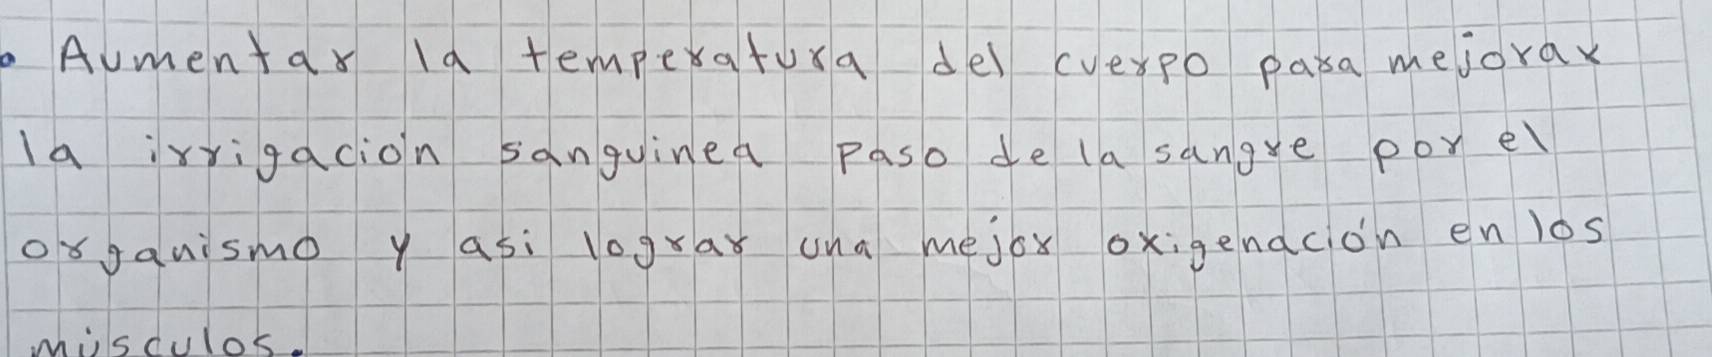 • Aumentar la temperatura del cuerpo para mejorar
la irrigación sanguinea paso de la sangre por el
organismo y asi lograr una mejor oxigenación en los
músculos.